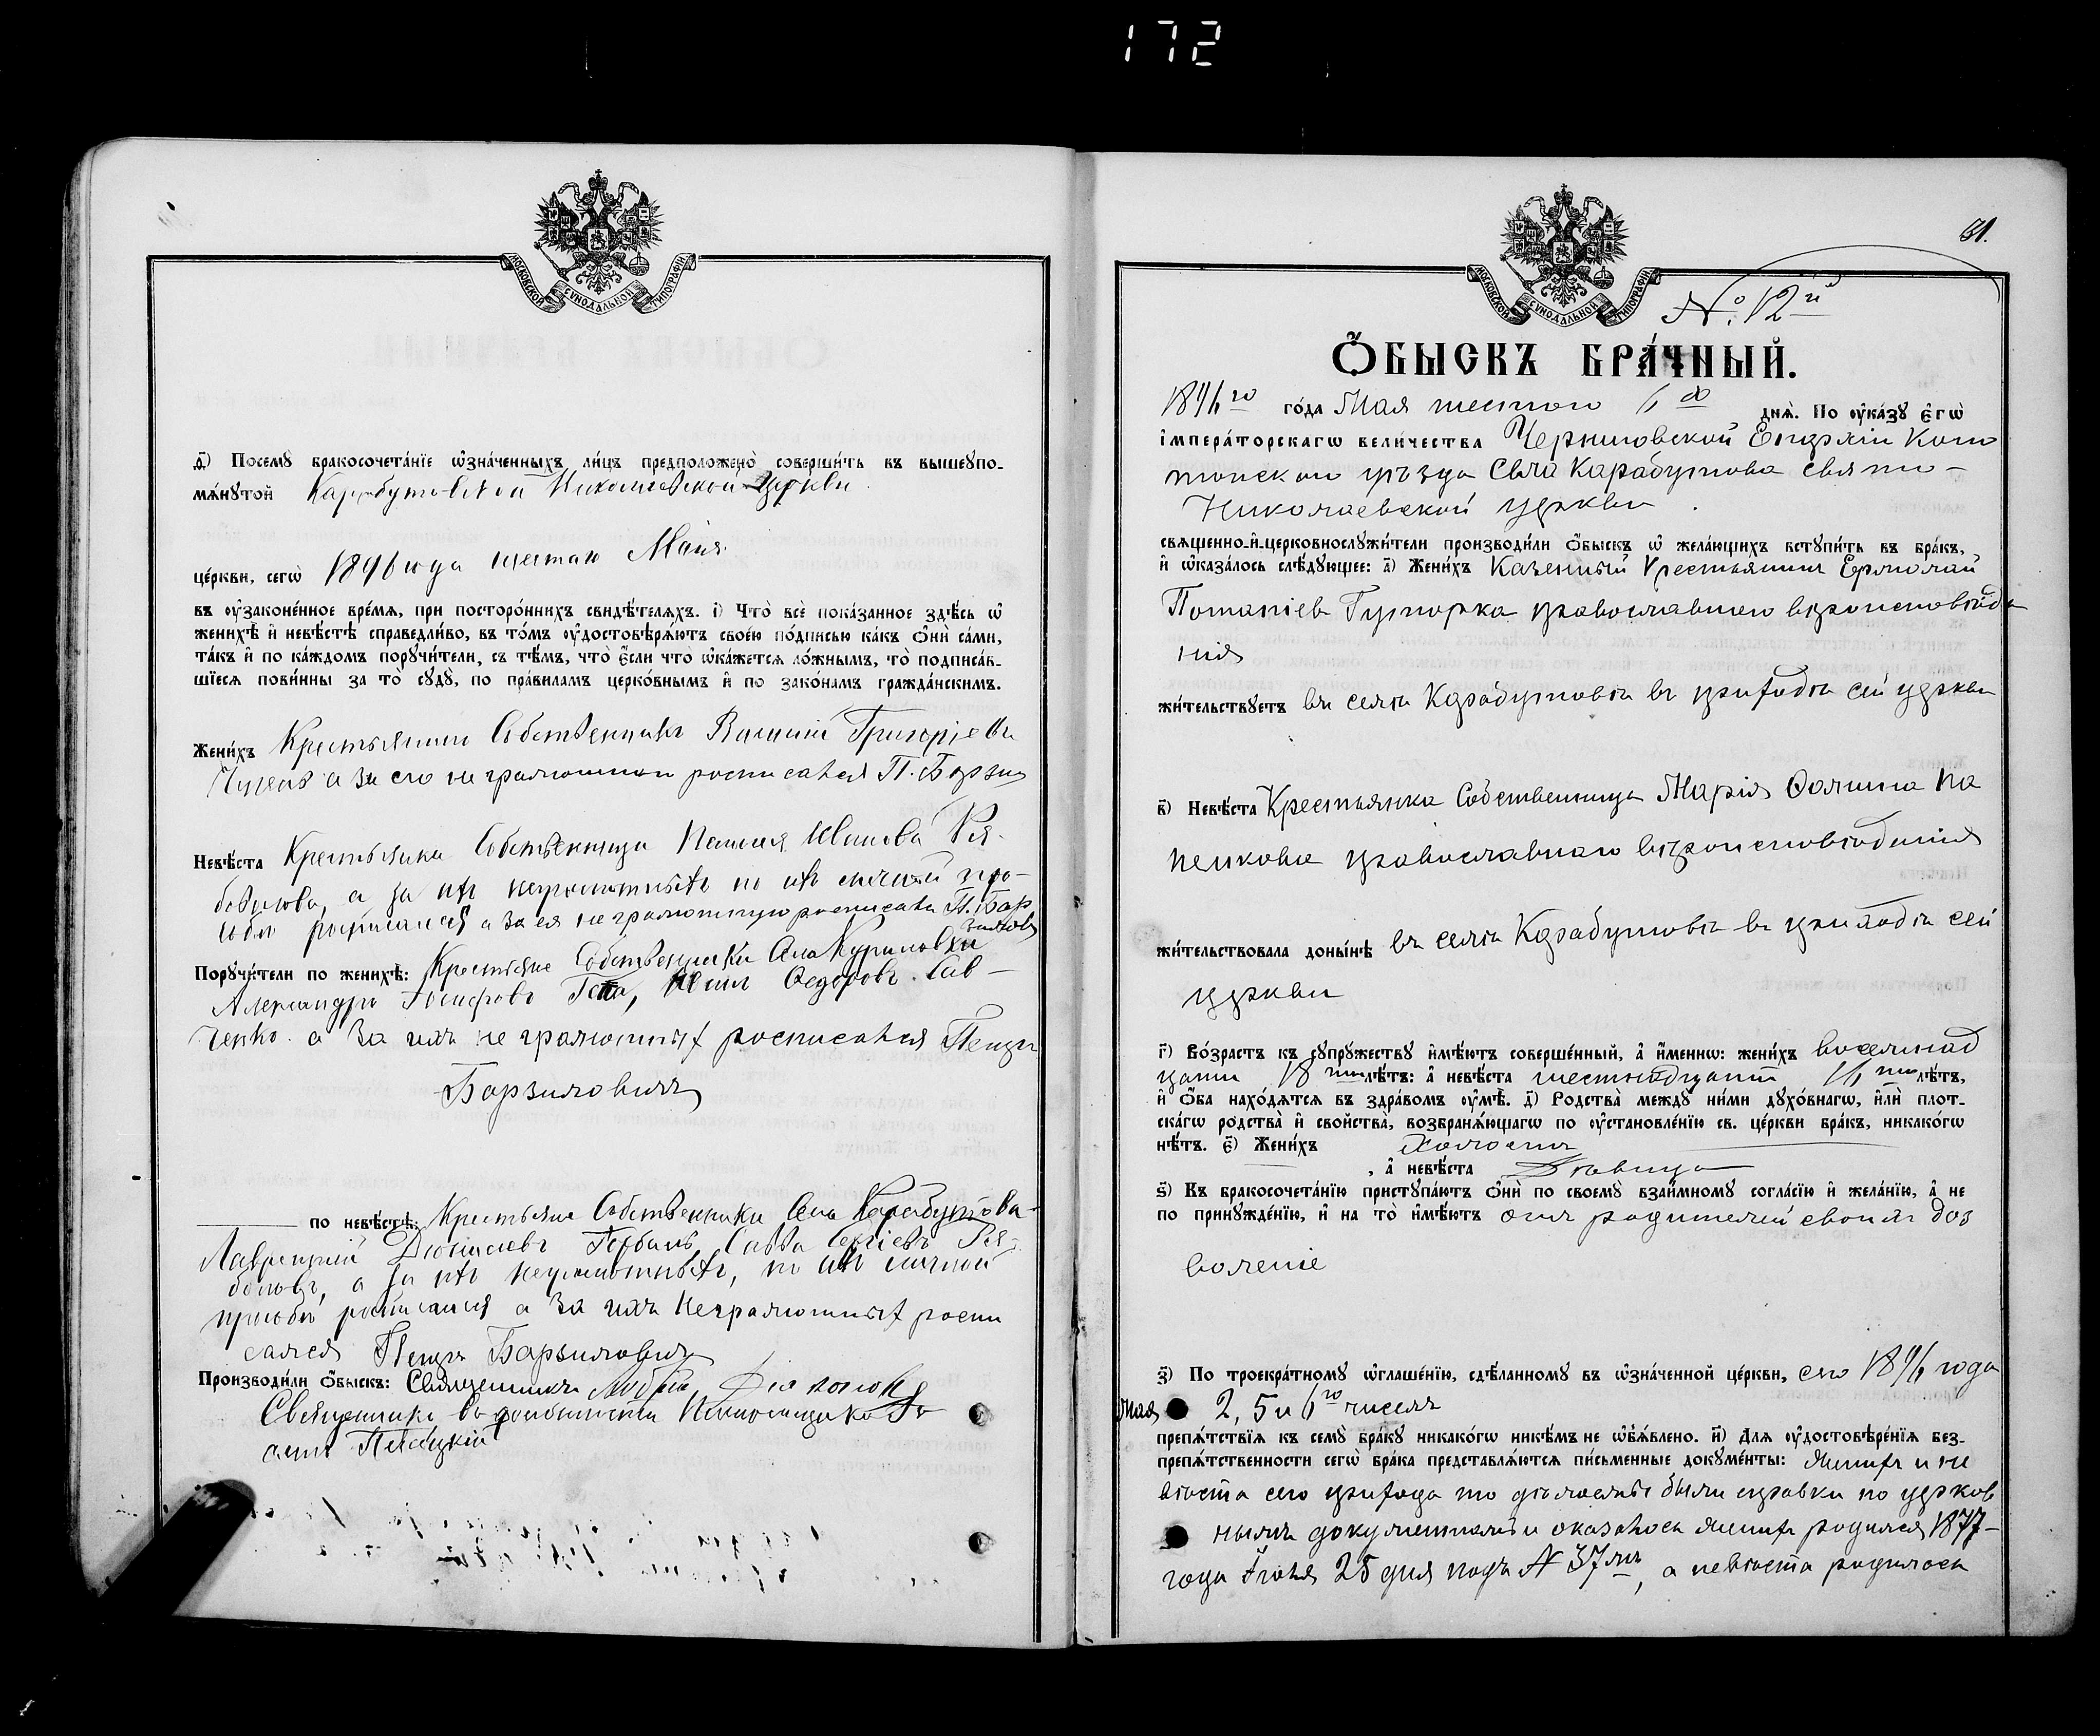 172
МОСКОВСКОЙ СѴНОДАЛЬНОЙ ТИПОГРАФІИ
д҃) Посемꙋ бракосочета́нїе ѡ҆зна́ченныхъ ли́цъ предположено̀ соверши́ть въ вышеупо-
мѧ́нꙋтой Карабутовской Николаевской Церкви
це́ркви, сегѡ̀ 1896 года шестаго Мая
въ ᲂу҆зако́не́нное вре́мѧ, при посторо́ннихъ свидѣ́телѧхъ. і҃) Что̀ всѐ пока́занное здѣ́сь ѡ҆
женихѣ̀ и҆ невѣ́стѣ справедли́во, въ то́мъ ᲂу҆достовѣрѧ́ютъ свое́ю по́дписью ка́къ ѻ҆нѝ са́ми,
та́къ и҆ по ка́ждомъ порꙋчи́тели, съ тѣ́мъ, что̀ є҆́сли что̀ ѡ҆ка́жетсѧ ло́жнымъ, то̀ подписа́в-
шїесѧ пови́нны за то̀ сꙋдꙋ̀, по пра́виламъ церко́внымъ и҆ по зако́намъ гражда́нскимъ.
Жени́хъ Крестьянинъ Собственникъ Василій Григоріевъ
а за его неграмотнаго росписался П. Барзил
Невѣ́ста Крестьянка Собственница Иванова Ря-
а за ихъ неграмотныхъ по ихъ личной про-
сьбѣ росписался а за ея неграмотную росписался П. Бар
зиловъ
Порꙋчи́тели по женихѣ̀: Крестьяне Собственники Села Куриловки
Александръ Іосифовъ Федоровъ Сав-
ченко а за ихъ не грамотныхъ росписался Петръ
Барзиловичъ
по невѣ́стѣ: Крестьяне Собственники Села Карабутова
Лаврентій Горбань, Савва Сергіевъ Ря-
а за ихъ неграмотныхъ, по ихъ личной
просьбѣ росписался а за ихъ Неграмотныхъ роспи
сался Петръ Барзиловичъ
Производи́ли ѻ҆́быскъ: Священникъ
Священника
31.
МОСКОВСКОЙ СѴНОДАЛЬНОЙ ТИПОГРАФІИ
№ 12й
Ѻ҆́БЫСКЪ БРА́ЧНЫЙ.
1896го го́да Мая шестого 6го днѧ̀. По ᲂу҆ка́зꙋ є҆гѡ̀
і҆мпера́торскагѡ вели́чества Черниговской Епархіи Коно
топскаго уѣзда Села Карабутова свято-
Николаевской церкви
свѧще́нно-и҆-церковнослꙋжи́тели производи́ли ѻ҆́быскъ ѡ҆ жела́ющихъ встꙋпи́ть въ бра́къ,
и҆ ѡ҆каза́лось слѣ́дꙋющее: а҃) Жени́хъ Казенный Крестьянинъ Ермолай
Потапіевъ православнаго вѣроисповѣда
нія
жи́тельствꙋетъ въ селѣ Карабутовѣ въ приходѣ сей церкви
в҃) Невѣ́ста Крестьянка Собственница Марія Фомина Па
пенкова православнаго вѣроисповѣданія
жи́тельствовала доны́нѣ въ селѣ Карабутовѣ въ приходѣ сей
церкви
г҃) Во́зрастъ къ сꙋпрꙋ́жествꙋ и҆мѣ́ютъ соверше́нный, а҆ и҆́менно: жени́хъ восемнад
цати 18ти лѣ́тъ: а҆ невѣ́ста шестнадцати 16ти лѣ́тъ,
и҆ ѻ҆́ба нахо́дѧтсѧ въ здра́вомъ ᲂу҆мѣ̀. д҃) Родства̀ междꙋ ни́ми дꙋхо́внагѡ, и҆лѝ плот-
ска́гѡ родства̀ и҆ сво́йства, возбранѧ́ющагѡ по ᲂу҆становле́нїю св. це́ркви бра́къ, никако́гѡ
нѣ́тъ. є҃) Жени́хъ Холостъ
, а҆ невѣ́ста Дѣвица
ѕ҃) Къ бракосочета́нїю пристꙋпа́ютъ ѻ҆нѝ по своемꙋ̀ взаи́мномꙋ согла́сїю и҆ жела́нїю, а҆ не
по принꙋжде́нїю, и҆ на то̀ и҆мѣ́ютъ отъ родителей своихъ доз
воленіе
з҃) По троекра́тномꙋ ѡ҆глаше́нїю, сдѣ́ланномꙋ въ ѡ҆зна́ченной це́ркви, сего 1896 года
Мая 2, 5 и 6го чиселъ
препѧ́тствїѧ къ семꙋ̀ бра́кꙋ никако́гѡ никѣ́мъ не ѡ҆б̾ѧ́влено. и҃) Длѧ ᲂу҆достовѣре́нїѧ без-
препѧ́тственности сегѡ̀ бра́ка представлѧ́ютсѧ пи́сьменные докꙋме́нты: Женихъ и не
вѣста сего прихода то дѣлаемы были справки по церков
нымъ документамъ и оказалось женихъ родился 1877-
года Іюля 25 дня подъ № 37мъ, а невѣста родилась